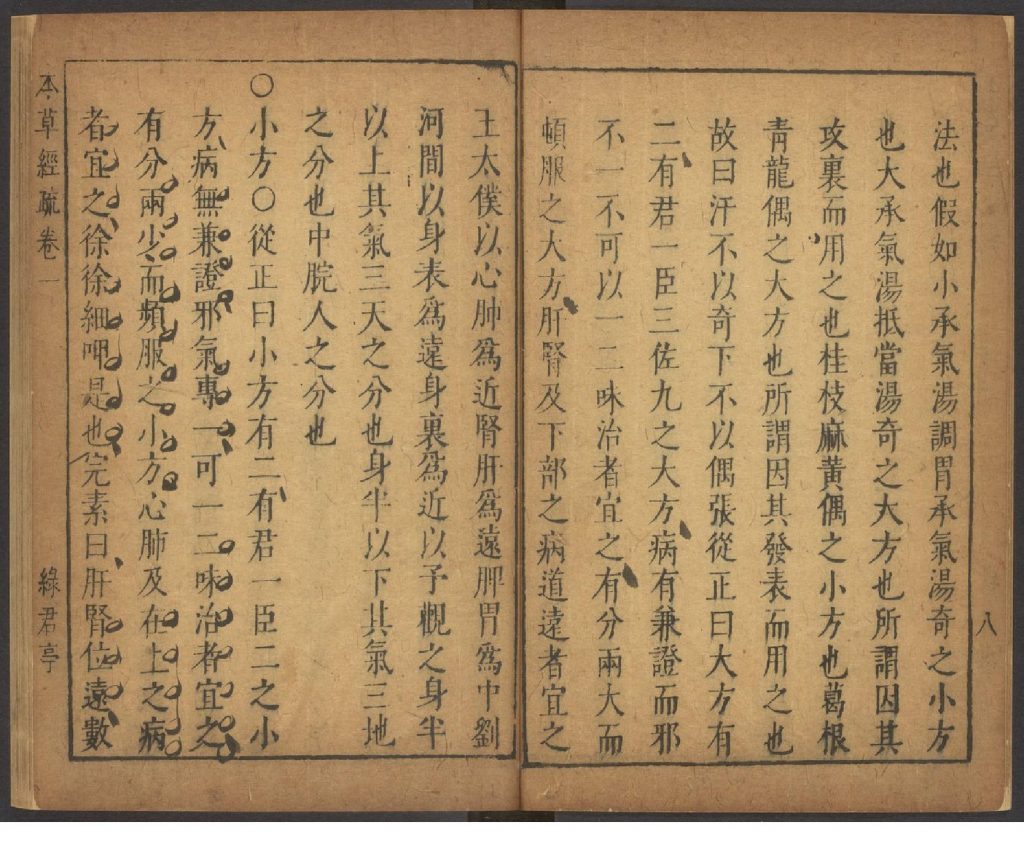 法也假如小承氣湯調胃承氣湯奇之小方
也大承氣湯抵當湯奇之大方也所謂因其
攻裏而用之也桂枝麻黃偶之小方也葛根
青龍偶之大方也所謂因其發表而用之也
故曰汗不以奇下不以偶張從正曰大方有
二有君一臣三佐九之大方病有兼證而邪
不一不可以一二味治者宜之有分兩大而
頓服之大方肝腎及下部之病道遠者宜之
八
王太僕以心肺爲近腎肝爲遠脾胃爲中劉
河間以身表爲遠身裏爲近以予觀之身半
以上其氣三天之分也身半以下其氣三地
之分也中脘人之分也
○小方○從正曰小方有二有君一臣二之小
方病無兼證邪氣專一可一二味治者宜之
有分兩少而頻服之小方心肺及在上之病
者宜之徐徐細呷是也完素曰肝腎位遠數
本草經疏卷一
綠君亭